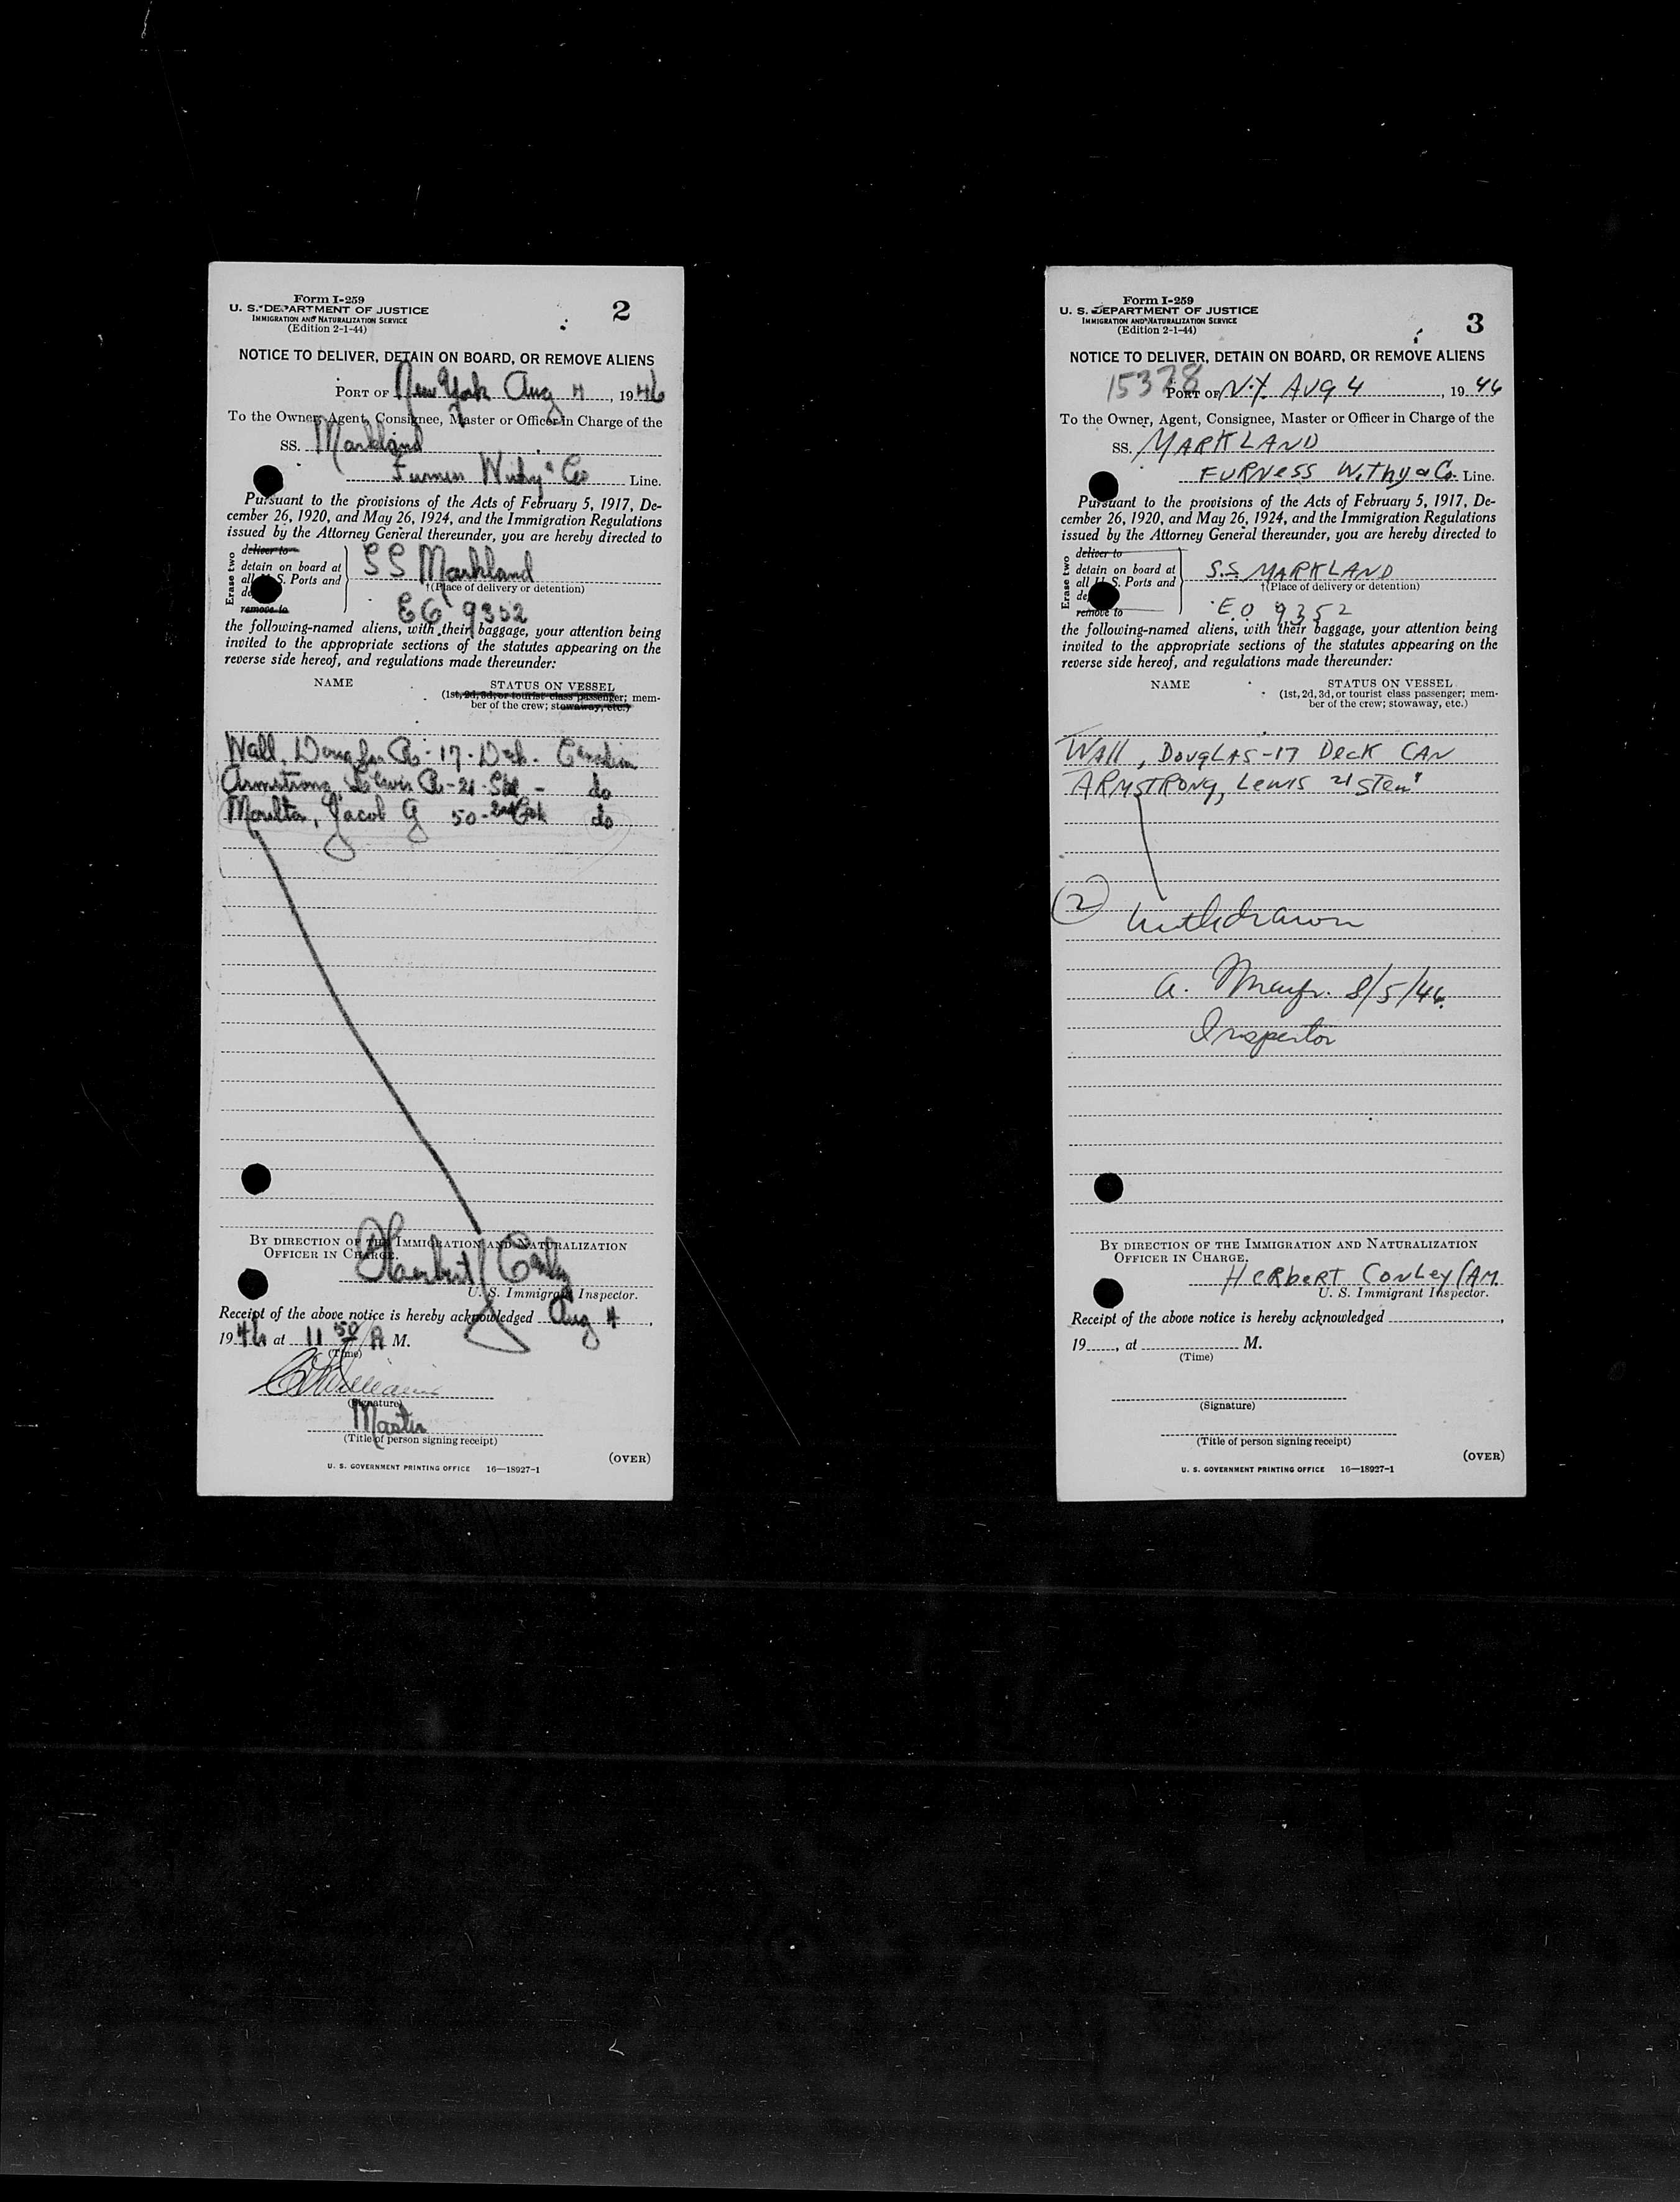 Form I-259
U. S. DEPARTMENT OF JUSTICE
IMMIGRATION AND NATURALIZATION SERVICE
(Edition 2-1-44)
2
NOTICE TO DELIVER, DETAIN ON BOARD, OR REMOVE ALIENS
PORT OF New York Aug 4, 1946
To the Owner, Agent, Consignee, Master or Officer in Charge of the
SS. Markland
Furness Withy & Co Line.
Pursuant to the provisions of the Acts of February 5, 1917, De-
cember 26, 1920, and May 26, 1924, and the Immigration Regulations
issued by the Attorney General thereunder, you are hereby directed to
Erase two
deliver to
detain on board at
all U. S. Ports and
SS Markland
†(Place of delivery or detention)
remove to
EO 9352
the following-named aliens, with their baggage, your attention being
invited to the appropriate sections of the statutes appearing on the
reverse side hereof, and regulations made thereunder:
NAME STATUS ON VESSEL
(1st, 2d, 3d, or tourist class passenger; mem-
ber of the crew; stowaway, etc.)
Wall, Douglas - 17 - Deck - Canadian
Armstrong, Lewis - 21 - do
Moulton, Jacob G 50 - 2nd Cook do
BY DIRECTION OF THE IMMIGRATION AND NATURALIZATION
OFFICER IN CHARGE.
Herbert Conley
U. S. Immigrant Inspector.
Receipt of the above notice is hereby acknowledged Aug 4,
1946 at 11 50 A M.
(Time)
(Signature)
Master
(Title of person signing receipt)
(OVER)
U. S. GOVERNMENT PRINTING OFFICE 16—18927-1
Form I-259
U. S. DEPARTMENT OF JUSTICE
IMMIGRATION AND NATURALIZATION SERVICE
(Edition 2-1-44)
3
NOTICE TO DELIVER, DETAIN ON BOARD, OR REMOVE ALIENS
15378
PORT OF N.Y. AUG 4, 1946
To the Owner, Agent, Consignee, Master or Officer in Charge of the
SS. MARKLAND
FURNESS Withy & Co. Line.
Pursuant to the provisions of the Acts of February 5, 1917, De-
cember 26, 1920, and May 26, 1924, and the Immigration Regulations
issued by the Attorney General thereunder, you are hereby directed to
Erase two
deliver to
detain on board at
all U. S. Ports and
S.S MARKLAND
†(Place of delivery or detention)
remove to
E.O 9352
the following-named aliens, with their baggage, your attention being
invited to the appropriate sections of the statutes appearing on the
reverse side hereof, and regulations made thereunder:
NAME STATUS ON VESSEL
(1st, 2d, 3d, or tourist class passenger; mem-
ber of the crew; stowaway, etc.)
WAll, DOUGLAS-17 DECK CAN
ARMSTRONG, LEWIS 21 Stew "
2 withdrawn
8/5/46
Inspector
BY DIRECTION OF THE IMMIGRATION AND NATURALIZATION
OFFICER IN CHARGE.
HERBERT CONLEY /AM.
U. S. Immigrant Inspector.
Receipt of the above notice is hereby acknowledged ,
19 , at M.
(Time)
(Signature)
(Title of person signing receipt)
(OVER)
U. S. GOVERNMENT PRINTING OFFICE 16—18927-1